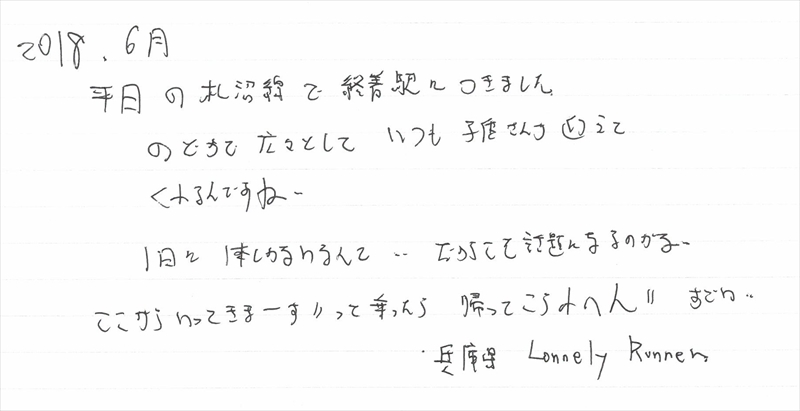 2018.6月
平日の札沼線で終着駅につきました
のどかで広々として いつも 子供さんが迎えて
くれるんですねー
1日に1本しかないなんて‥ だからこそ話題になるのかなー
ここからいってきまーす〃って乗ったら 帰ってこられへん〃 すごい‥
兵庫県 Lonnely Runner